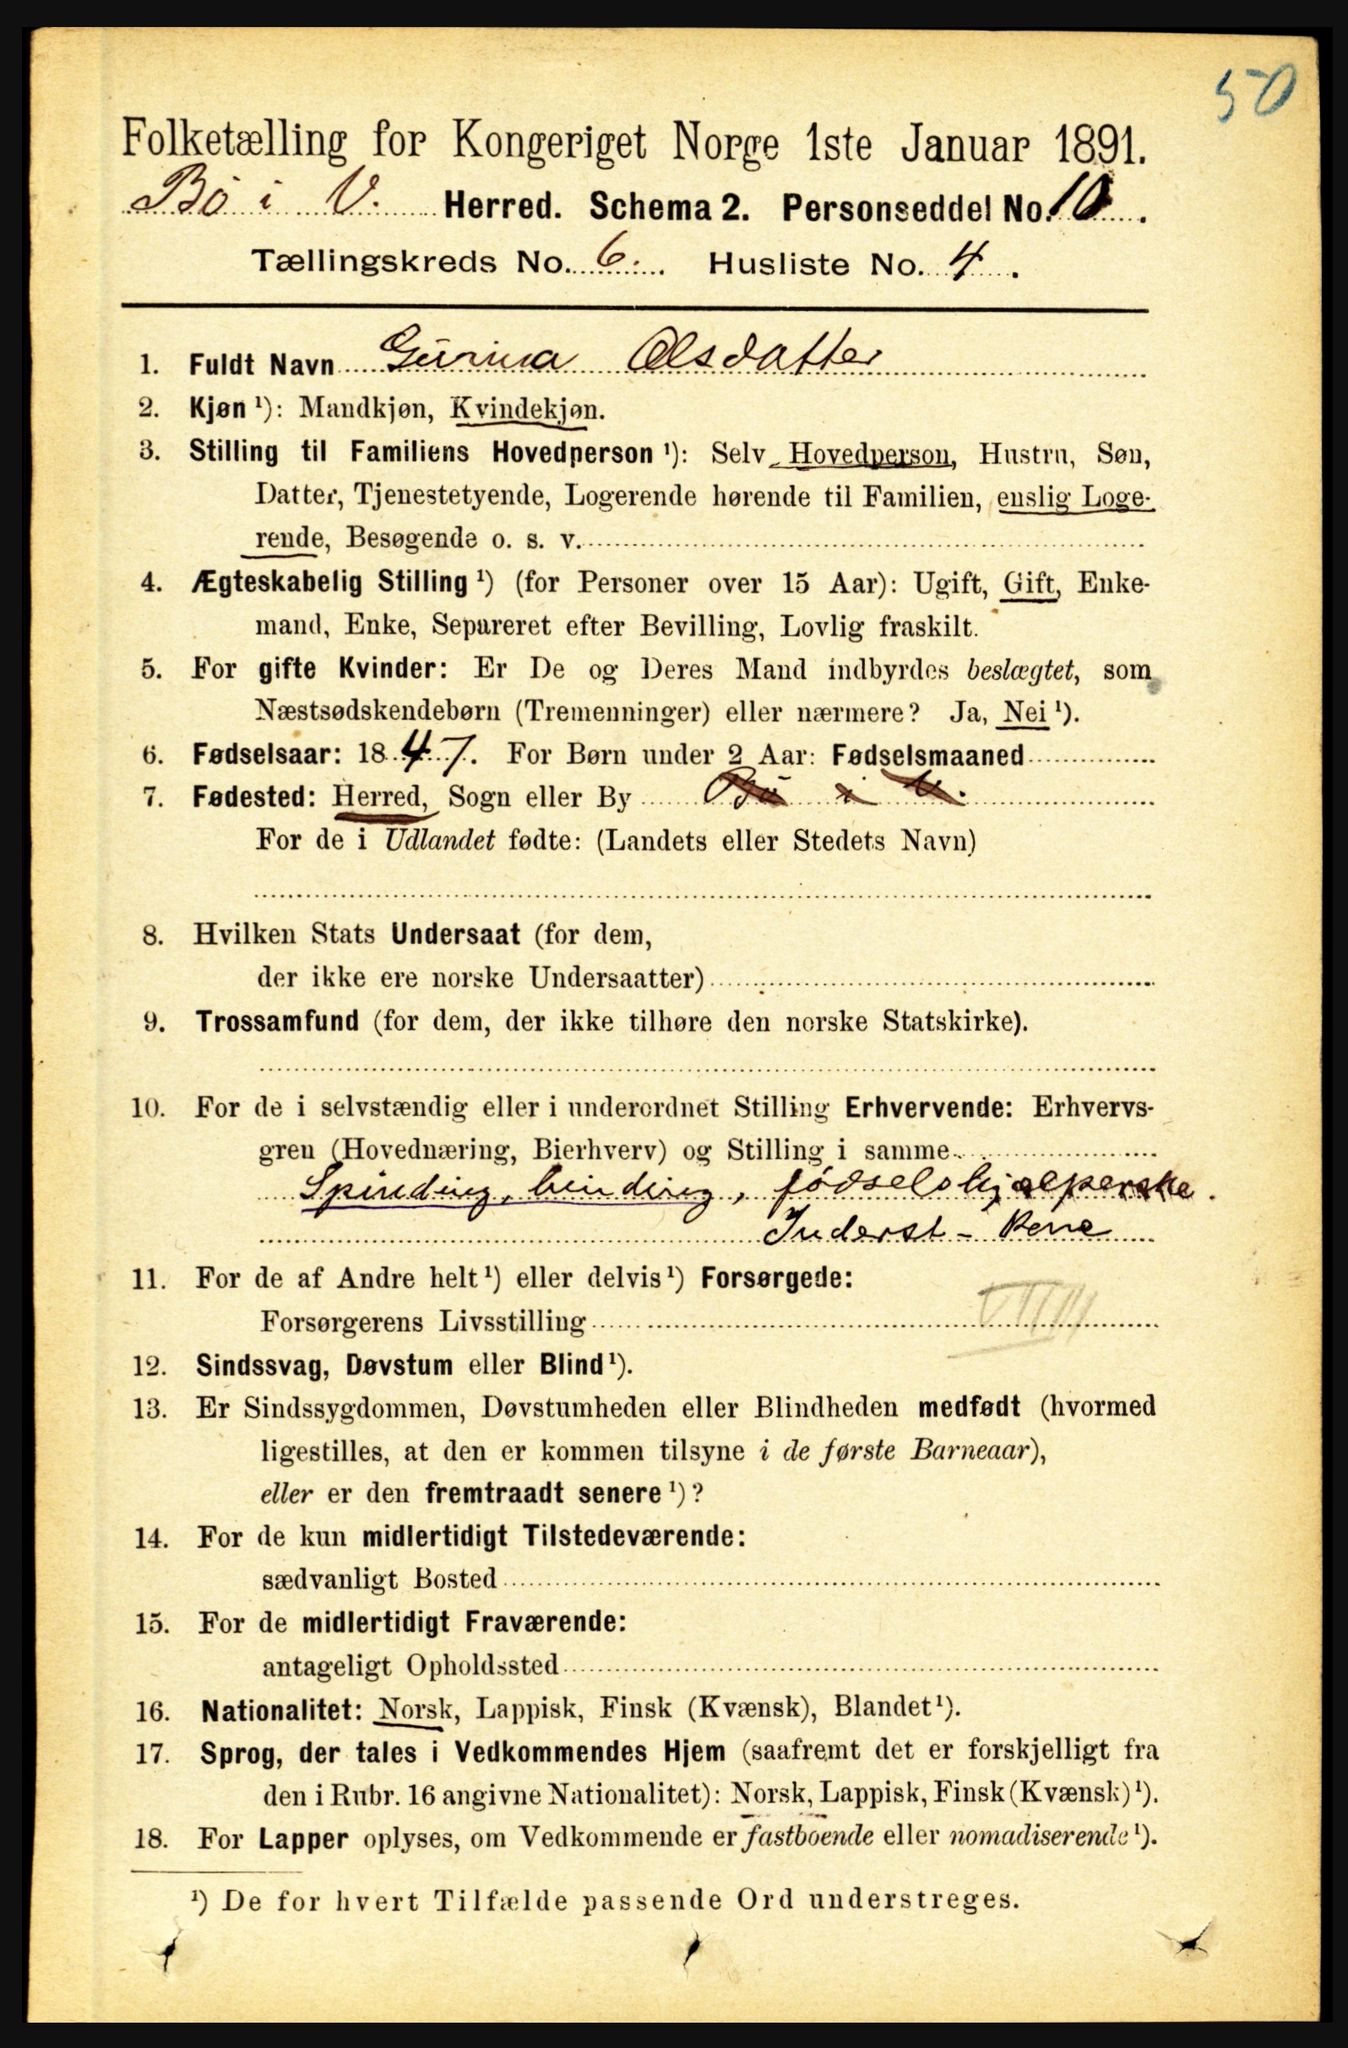 50
Folketælling for Kongeriget Norge 1ste Januar 1891.
Bö i V. Herred. Schema 2. Personseddel No. 10.
Tællingskreds No. 6. Husliste No. 4.
1. Fuldt Navn Gurina Olsdatter
2. Kjøn ¹): Mandkjøn, Kvindekjøn.
3. Stilling til Familiens Hovedperson ¹): Selv Hovedperson, Hustru, Søn,
Datter, Tjenestetyende, Logerende hørende til Familien, enslig Loge-
rende, Besøgende o. s. v.
4. Ægteskabelig Stilling ¹) (for Personer over 15 Aar): Ugift, Gift, Enke-
mand, Enke, Separeret efter Bevilling, Lovlig fraskilt.
5. For gifte Kvinder: Er De og Deres Mand indbyrdes beslægtet, som
Næstsødskendebørn (Tremenninger) eller nærmere? Ja, Nei ¹).
6. Fødselsaar: 1847. For Børn under 2 Aar: Fødselsmaaned
7. Fødested: Herred, Sogn eller By Bö i V.
For de i Udlandet fødte: (Landets eller Stedets Navn)
8. Hvilken Stats Undersaat (for dem,
der ikke ere norske Undersaatter)
9. Trossamfund (for dem, der ikke tilhøre den norske Statskirke).
10. For de i selvstændig eller i underordnet Stilling Erhvervende: Erhvervs-
gren (Hovednæring, Bierhverv) og Stilling i samme
Spinding, binding, födselshjælperske.
Inderst -
11. For de af Andre helt ¹) eller delvis ¹) Forsørgede:
Forsørgerens Livsstilling
12. Sindssvag, Døvstum eller Blind ¹).
13. Er Sindssygdommen, Døvstumheden eller Blindheden medfødt (hvormed
ligestilles, at den er kommen tilsyne i de første Barneaar),
eller er den fremtraadt senere ¹)?
14. For de kun midlertidigt Tilstedeværende:
sædvanligt Bosted
15. For de midlertidigt Fraværende:
antageligt Opholdssted
16. Nationalitet: Norsk, Lappisk, Finsk (Kvænsk), Blandet ¹).
17. Sprog, der tales i Vedkommendes Hjem (saafremt det er forskjelligt fra
den i Rubr. 16 angivne Nationalitet): Norsk, Lappisk, Finsk (Kvænsk) ¹).
18. For Lapper oplyses, om Vedkommende er fastboende eller nomadiserende ¹).
¹) De for hvert Tilfælde passende Ord understreges.